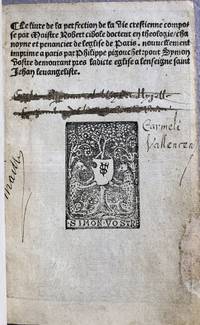 Le liure de la perfection de la vie crestienne compose
par Maistre Robert cibole docteur en theologie/cha
noyne et penancier de leglise de Paris. nouuellement
imprime a paris par Philippe pigouchet: pour Symon
vostre demourant pres ladicte eglise a lenseigne saint
Jehan leuangeliste.
Carmeli
SIMON VOSTRE